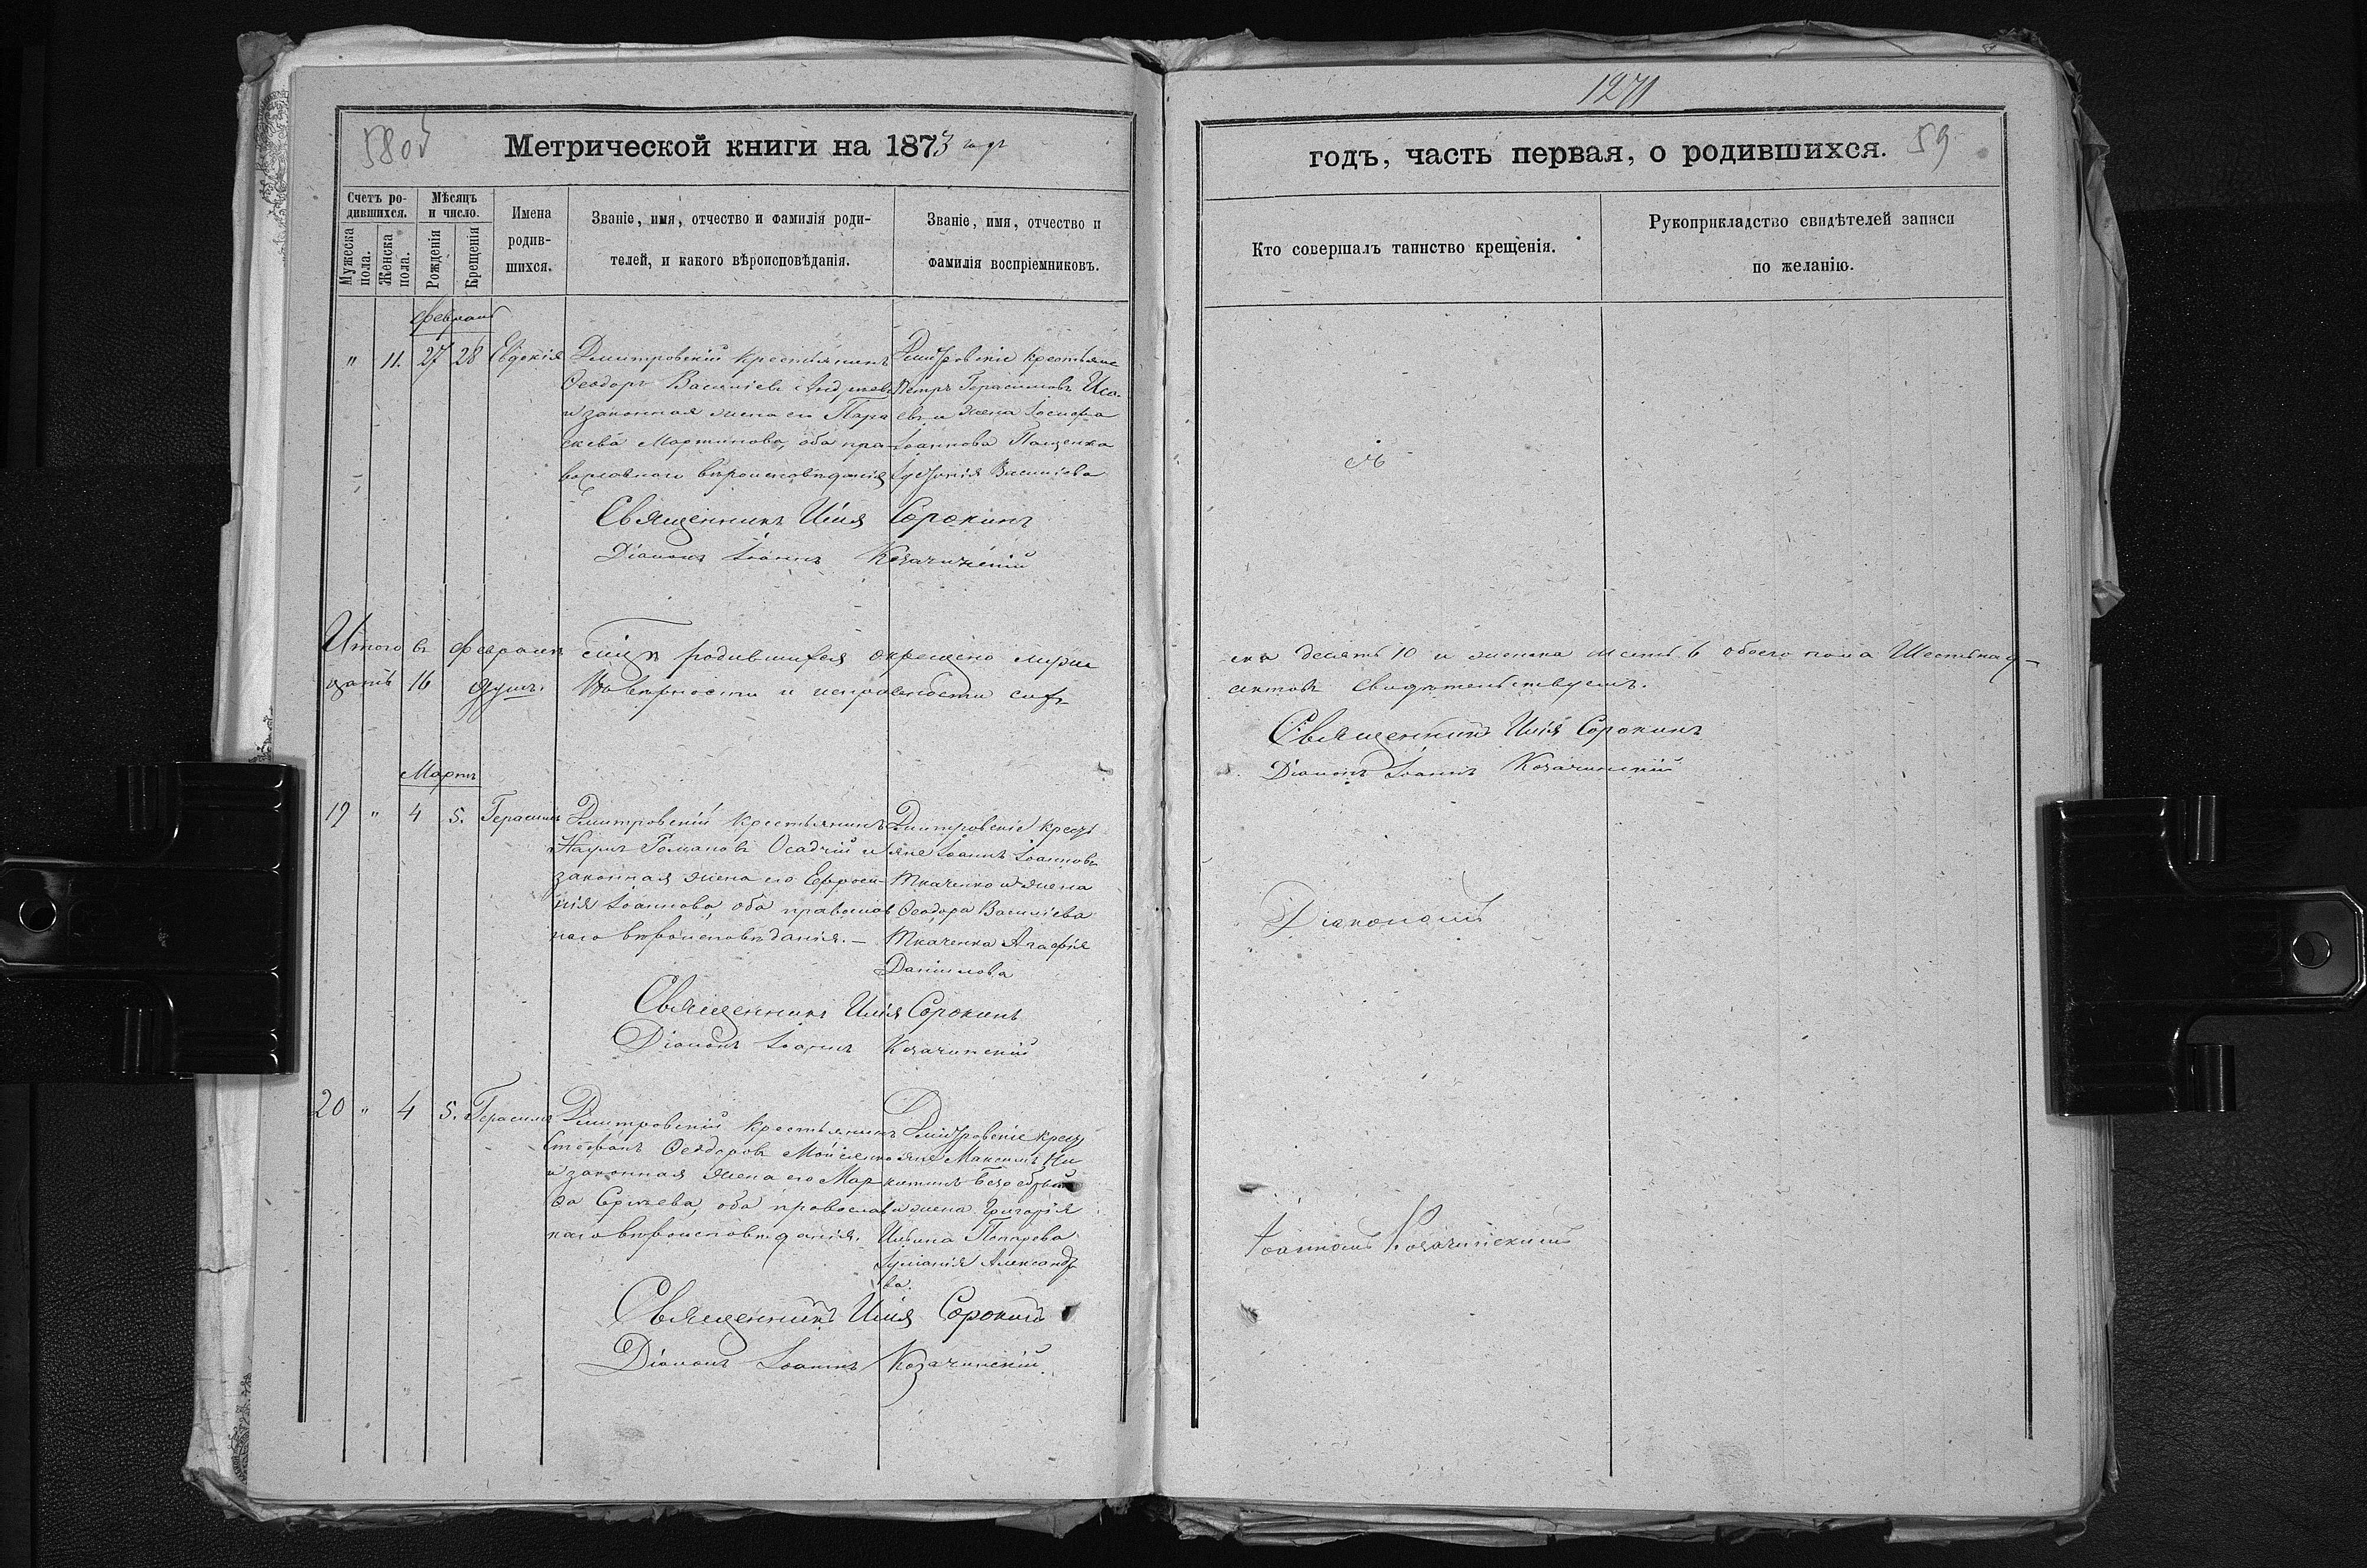 58об
Метрической книги на 1873 годъ
Счетъ ро-
дившихся.
Мужеска
пола.
Женска
пола.
Мѣсяцъ
и число.
Рожденія
Крещенія
Имена
родив-
шихся.
Званіе, имя, отчество и фамилія роди-
телей, и какого вѣроисповѣданія.
Званіе, имя, отчество и
фамилія воспріемниковъ.
Февраль
" 11. 27 28 Евдокія
Дмитровскій крестьянинъ
Ѳеодоръ Василіевъ
и законная жена его Пара
скева Мартинова, оба пра-
вославного вѣроисповѣданія
Дмитровскіе крестьяне
Петръ Герасимовъ Иса-
евъ и жена Іосифа
Іоаннова Пащенка
Василіева
Священникъ Илія Сорокинъ
Діаконъ Іоаннъ Козачинскій
Итого въ февралѣ сіихъ родившихся окрещено муже
цать 16 душъ. Въ вѣрности и исправности сихъ
Мартъ
19 " 4 5. Герасимъ
Дмитровскій крестьянинъ
Наумъ Романовъ Осадчій и
законная жена его Ефроси-
нія Іоаннова, оба православ
наго вѣроисповѣданія. —
Дмитровскіе крест
яне Іоаннъ Іоанновъ
Ткаченко и жена
Ѳеодора Василіева
Ткаченка Агафія
Даниилова
Священникъ Илія Сорокинъ
Діаконъ Іоаннъ Козачинскій
20 " 4 5. Герасимъ
Дмитровскій крестьянинъ
Стефанъ Ѳеодоровъ Мойсеенко
и законная жена его Мар
ѳа Сргѣева, оба православ
наго вѣроисповѣданія.
Дмитровскіе крест
яне Максимъ Ни
китинъ
и жена Григорія
Ильина Понарева
Іуліанія Александр
ва.
Священникъ Илія Сорокинъ
Діаконъ Іоаннъ Козачинскій
1271
годъ, часть первая, о родившихся.
59
Кто совершалъ таинство крещенія.
Рукоприкладство свидѣтелей записи
по желанію.
ска десять 10 и женска шесть 6 обоего пола Шестьнад-
актовъ свидѣтельствуемъ.
Священникъ Илія Сорокинъ
Діаконъ Іоаннъ Козачинскій
Діакономъ
Іоанномъ Козачинскимъ